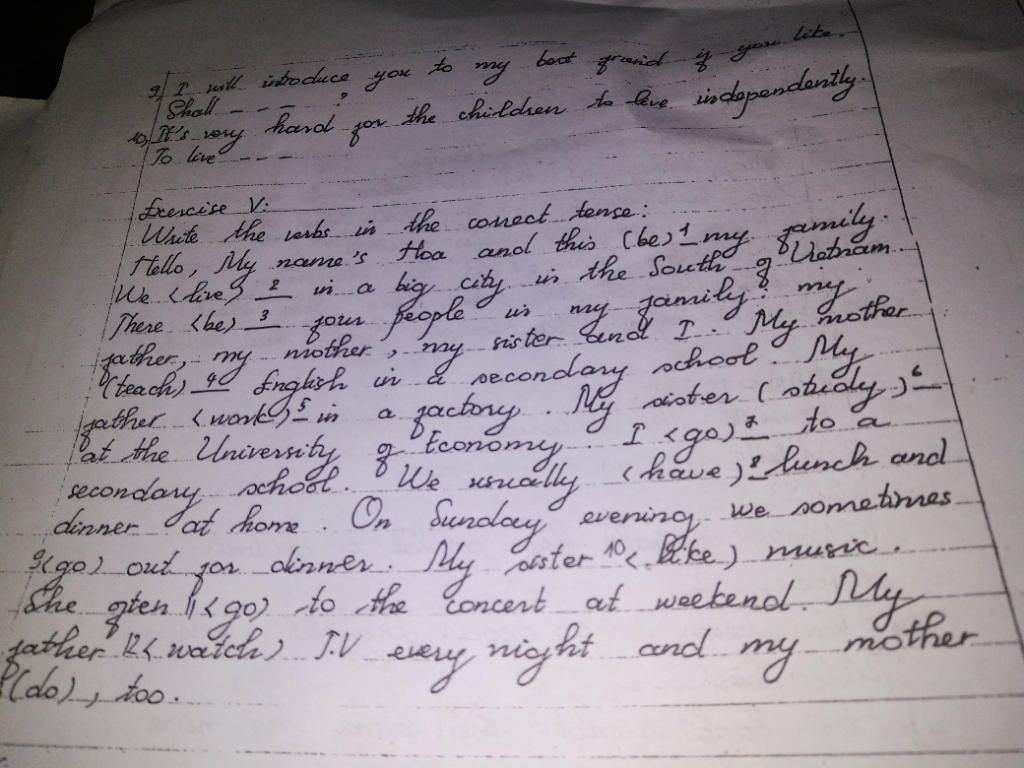 9, I will introduce you to my best friend if you like.
Shall - - - ?
10, It's very hard for the children to live independently.
To live - - -
Exercise V:
Write the verbs in the correct tense:
Hello, My name's Hoa and this (be) 1 my family.
We (live) 2 in a big city in the South of Vietnam.
There (be) 3 four people in my family: my
father, my mother, my sister and I. My mother
(teach) 4 English in a secondary school. My
father (work) 5 in a factory. My sister (study) 6
at the University of Economy. I (go) 7 to a
secondary school. We usually (have) 8 lunch and
dinner at home. On Sunday evening we sometimes
9(go) out for dinner. My sister 10 (like) music.
She often 11(go) to the concert at weekend. My
father 12(watch) T.V every night and my mother
(do), too.